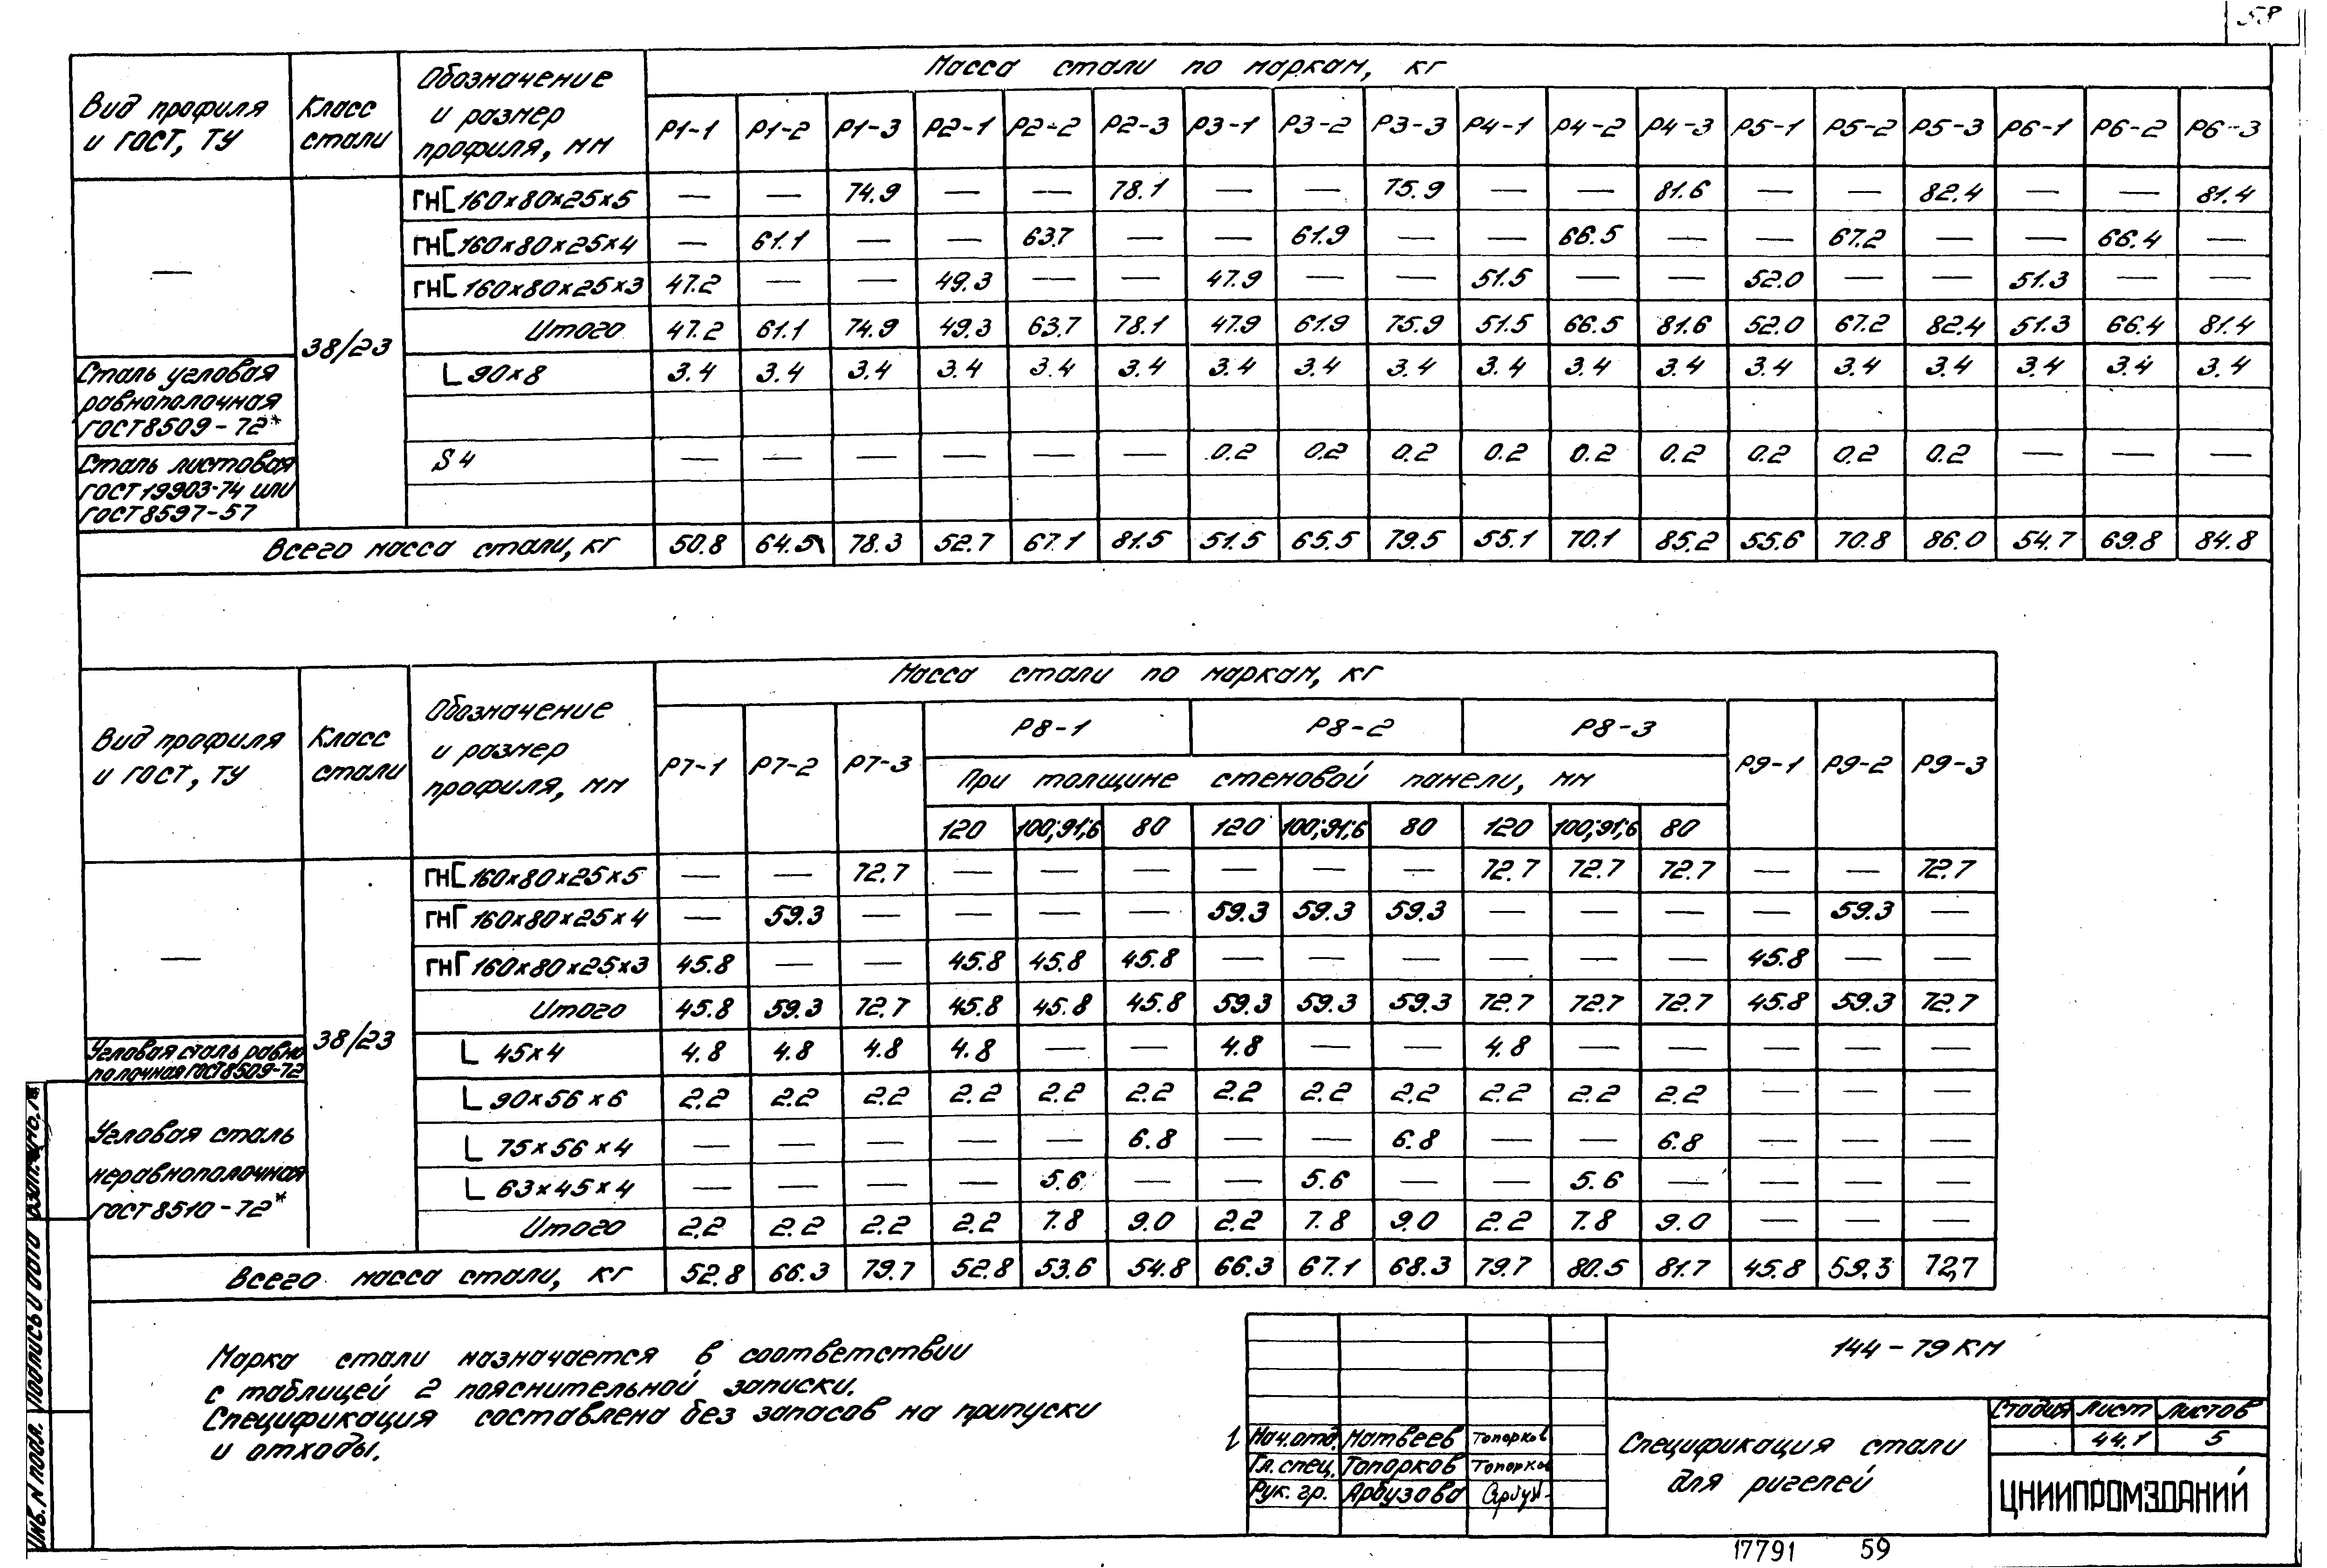 58
Вид профиля и ГОСТ, ТУ | Класс стали | Обозначение и размер профиля, мм | Масса стали по маркам, кг
Р1-1 | Р1-2 | Р1-3 | Р2-1 | Р2-2 | Р2-3 | Р3-1 | Р3-2 | Р3-3 | Р4-1 | Р4-2 | Р4-3 | Р5-1 | Р5-2 | Р5-3 | Р6-1 | Р6-2 | Р6-3
— | 38/23
ГН[160×80×25×5 | — | — | 74.9 | — | — | 78.1 | — | — | 75.9 | — | — | 81.6 | — | — | 82.4 | — | — | 81.4
ГН[160×80×25×4 | — | 61.1 | — | — | 63.7 | — | — | 61.9 | — | — | 66.5 | — | — | 67.2 | — | — | 66.4 | —
ГН[160×80×25×3 | 47.2 | — | — | 49.3 | — | — | 47.9 | — | — | 51.5 | — | — | 52.0 | — | — | 51.3 | — | —
Итого | 47.2 | 61.1 | 74.9 | 49.3 | 63.7 | 78.1 | 47.9 | 61.9 | 75.9 | 51.5 | 66.5 | 81.6 | 52.0 | 67.2 | 82.4 | 51.3 | 66.4 | 81.4
Сталь угловая
равнополочная
ГОСТ 8509-72*
L 90×8 | 3.4 | 3.4 | 3.4 | 3.4 | 3.4 | 3.4 | 3.4 | 3.4 | 3.4 | 3.4 | 3.4 | 3.4 | 3.4 | 3.4 | 3.4 | 3.4 | 3.4 | 3.4
Сталь листовая
ГОСТ 19903-74 или
ГОСТ 8597-57
S 4 | — | — | — | — | — | — | 0.2 | 0.2 | 0.2 | 0.2 | 0.2 | 0.2 | 0.2 | 0.2 | 0.2 | — | — | —
Всего масса стали, кг | 50.8 | 64.5 | 78.3 | 52.7 | 67.1 | 81.5 | 51.5 | 65.5 | 79.5 | 55.1 | 70.1 | 85.2 | 55.6 | 70.8 | 86.0 | 54.7 | 69.8 | 84.8
Вид профиля и ГОСТ, ТУ | Класс стали | Обозначение и размер профиля, мм | Масса стали по маркам, кг
Р7-1 | Р7-2 | Р7-3 | Р8-1 | Р8-2 | Р8-3 | Р9-1 | Р9-2 | Р9-3
При толщине стеновой панели, мм
120 | 100;91;6 | 80 | 120 | 100;91;6 | 80 | 120 | 100;91;6 | 80
— | 38/23
ГН[160×80×25×5 | — | — | 72.7 | — | — | — | — | — | — | 72.7 | 72.7 | 72.7 | — | — | 72.7
ГНГ 160×80×25×4 | — | 59.3 | — | — | — | — | 59.3 | 59.3 | 59.3 | — | — | — | — | 59.3 | —
ГНГ 160×80×25×3 | 45.8 | — | — | 45.8 | 45.8 | 45.8 | — | — | — | — | — | — | 45.8 | — | —
Итого | 45.8 | 59.3 | 72.7 | 45.8 | 45.8 | 45.8 | 59.3 | 59.3 | 59.3 | 72.7 | 72.7 | 72.7 | 45.8 | 59.3 | 72.7
Угловая сталь равно
полочная ГОСТ 8509-72
L 45×4 | 4.8 | 4.8 | 4.8 | 4.8 | — | — | 4.8 | — | — | 4.8 | — | — | — | — | —
Угловая сталь
неравнополочная
ГОСТ 8510-72*
L 90×56×6 | 2.2 | 2.2 | 2.2 | 2.2 | 2.2 | 2.2 | 2.2 | 2.2 | 2.2 | 2.2 | 2.2 | 2.2 | — | — | —
L 75×56×4 | — | — | — | — | — | 6.8 | — | — | 6.8 | — | — | 6.8 | — | — | —
L 63×45×4 | — | — | — | — | 5.6 | — | — | 5.6 | — | — | 5.6 | — | — | — | —
Итого | 2.2 | 2.2 | 2.2 | 2.2 | 7.8 | 9.0 | 2.2 | 7.8 | 9.0 | 2.2 | 7.8 | 9.0 | — | — | —
Всего масса стали, кг | 52.8 | 66.3 | 79.7 | 52.8 | 53.6 | 54.8 | 66.3 | 67.1 | 68.3 | 79.7 | 80.5 | 81.7 | 45.8 | 59.3 | 72,7
Марка стали назначается в соответствии
с таблицей 2 пояснительной записки.
Спецификация составлена без запасов на припуски
и отходы.
144-79 КМ
Нач.отд. Матвеев Топорков
Гл.спец. Топорков Топорков
Рук. гр. Арбузова
Спецификация стали
для ригелей
Стадия Лист Листов
44.1 5
ЦНИИПРОМЗДАНИЙ
Инв. N подл. Подпись и дата Взам. инв. N
17791 59